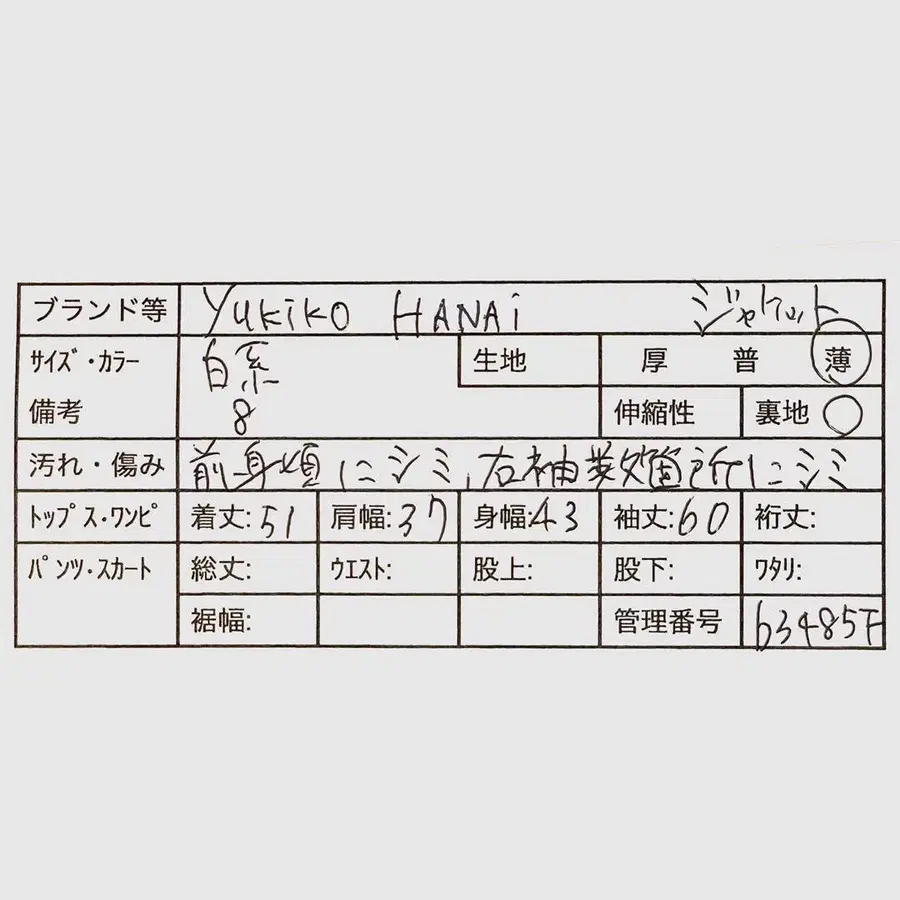 ブランド等 YUKiKO HANAi ジャケット
サイズ・カラー 白系 生地 厚 普 薄
備考 8 伸縮性 裏地 ○
汚れ・傷み 前身頃にシミ,右袖数箇所にシミ
トップス・ワンピ 着丈:51 肩幅:37 身幅:43 袖丈:60 裄丈:
パンツ・スカート 総丈: ウエスト: 股上: 股下: ワタリ:
裾幅: 管理番号 63485F